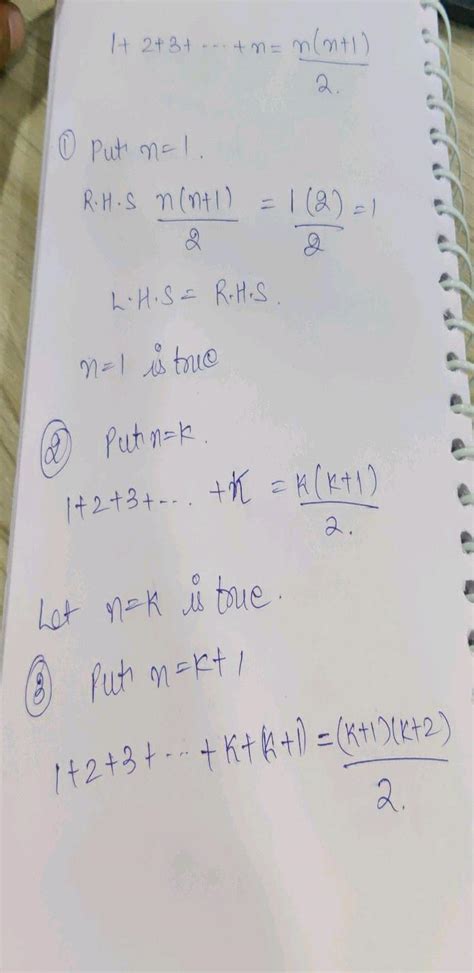 1+ 2+3+ ... +n = n(n+1)/2.
① Put n=1.
R.H.S n(n+1)/2 = 1(2)/2 = 1
L.H.S = R.H.S.
n=1 is true
② Put n=k.
1+2+3+.... +k = k(k+1)/2.
Let n=k is true.
③ Put n=k+1
1+2+3+ ... + k+(k+1) = (k+1)(k+2)/2.